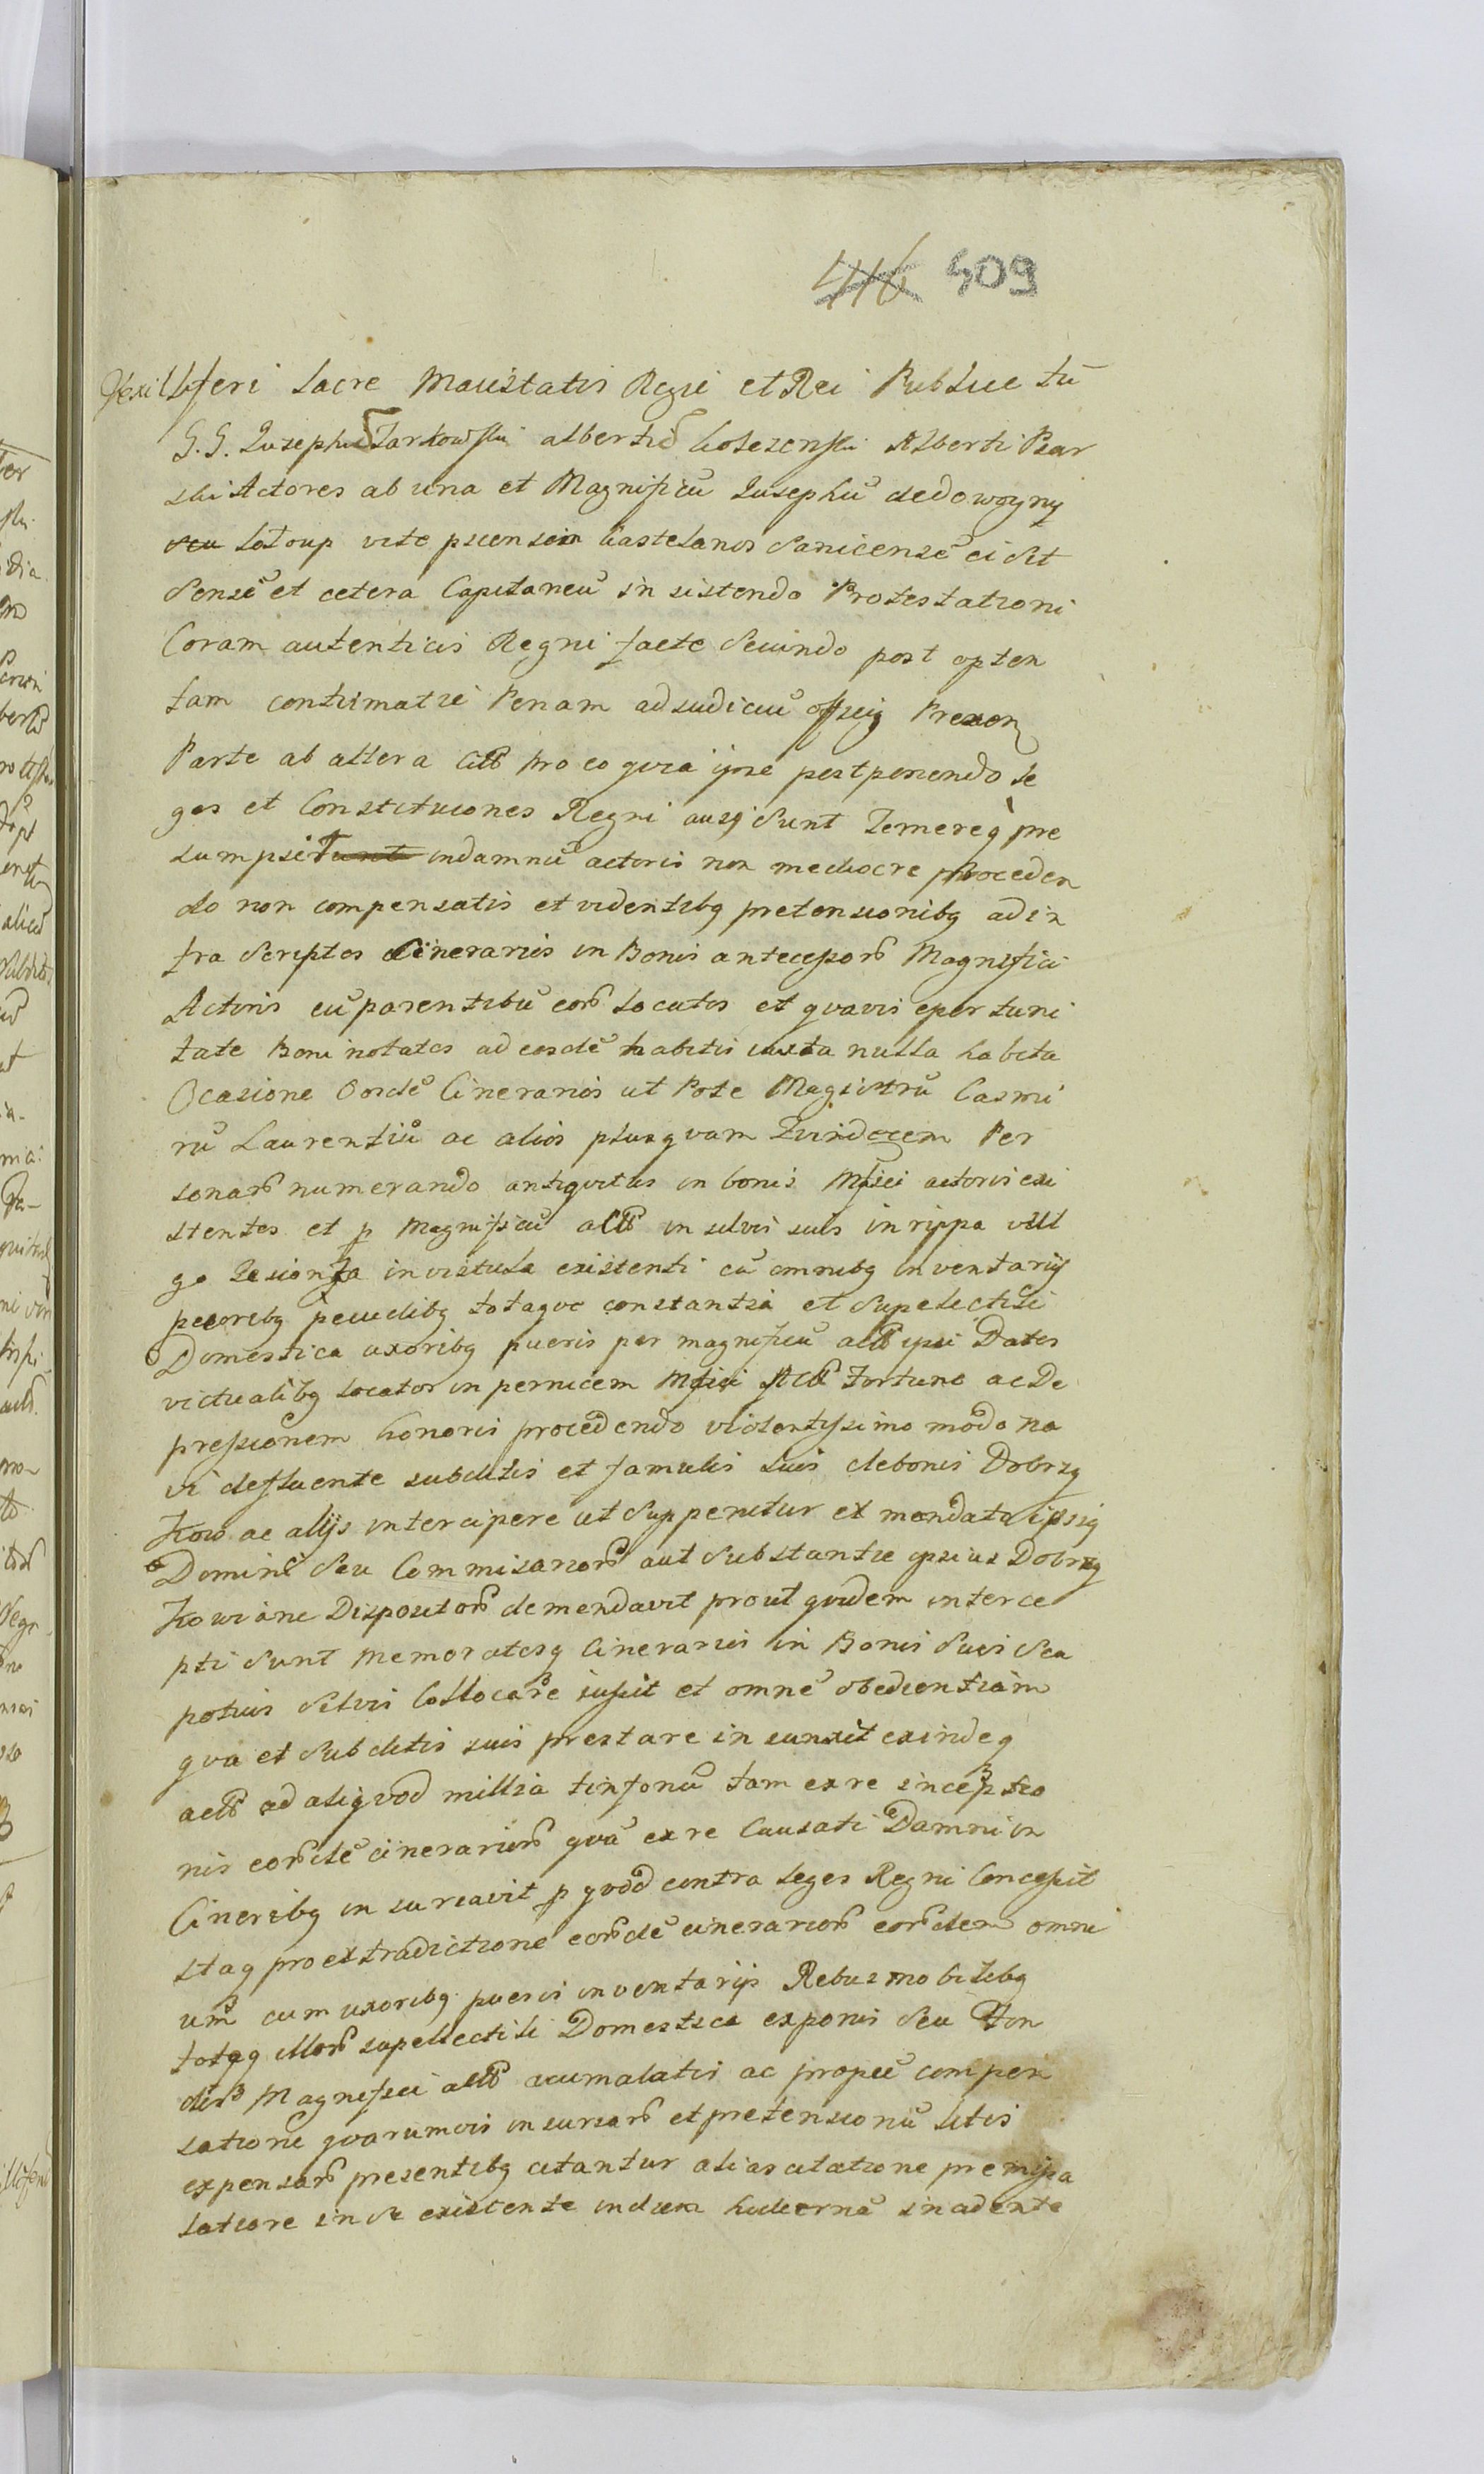 416 409
Vexilliferi Sacre Maiestatis Regie et Rei Publice tū
G.G. Iusephū Tarkowski albertū Golezenski Alberti Psar
ski Actores ab una et Magnificū Iusephū dedowoyny
seu Sotoup vite Castelanos Sanicensē
Sensē et cetera Capitaneū in sistendo Protestationi
Coram autenticis Regni facte Secundo post opten
tam contumatie Penam ad iudiciū
Parte ab altera Citt pro eo qvia ipse postponendo le
ges et Constituciones Regni ausi sunt Temereq pre
sumpsit in damnū actoris non mediocre proceden
do non compensatis et videntibq pretensionibq ad in
fra Scriptos Cinerariis in Bonis antecessorū Magnifici
Actoris cū parentibū eorū locatos et qvavis oportuni
tate Boni notatos ad eosdē habitis iuxta nulla habita
Ocasione Eosdē Cinerarios ut Pote Magistrū Casmi
rū Laurentiū ac alios plusqvam Qvindecem Per
sonarū numerando antiqvitus in bonis Mfici actoris exi
stentes et p Magnificū actt in silvis suis in rippa vul
go in vistula existenti cū omnibq inventariis
pecoribq pecudibq totaqve constantia et Supelectili
Domestica uxoribq pueris per magnificū actt ipsi Datos
victualibq locatos in pernicem Mfici Actt Fortune ac De
pressionem honoris procedendo violentissimo modo na
vi defluente subditis et famulis suis debonis Dobrzy
kow ac alijs intercipere ut Supponitur ex mandato ipsiq
Domini Seu Commisariorū aut Substantie ipsius Dobrzy
kowiane Dispositorū demendavit prout qvidem interce
pti sunt memoratosq Cinerarios in Bonis Suis Seu
potius Silvis Collocare iussit et omnē obedientiam
qva et Subditis suis prestare in iunxit exindeq
actt ad aliqvod millia tinfonū tam ex re incep tio
nis eorūdē cinerariorū qvā ex re Causati Damni in
Cineribq in suriavit p qvod contra leges Regni Concessit
Itaq pro extradictione eorūdē cinerariorū eorūdem omni
um cum uxoribq pueris inventarijs Rebus mobilibq
totaq illorū supellectili Domestica exponis Seu Fun
dis Magnifici actt acumalatis ac propriē compen
satione qvarumvis iniuriarū et pretensionū litis
expensarū presentibq citantur alias citatione premissa
latiore in se existente in diem hodiernā inadente